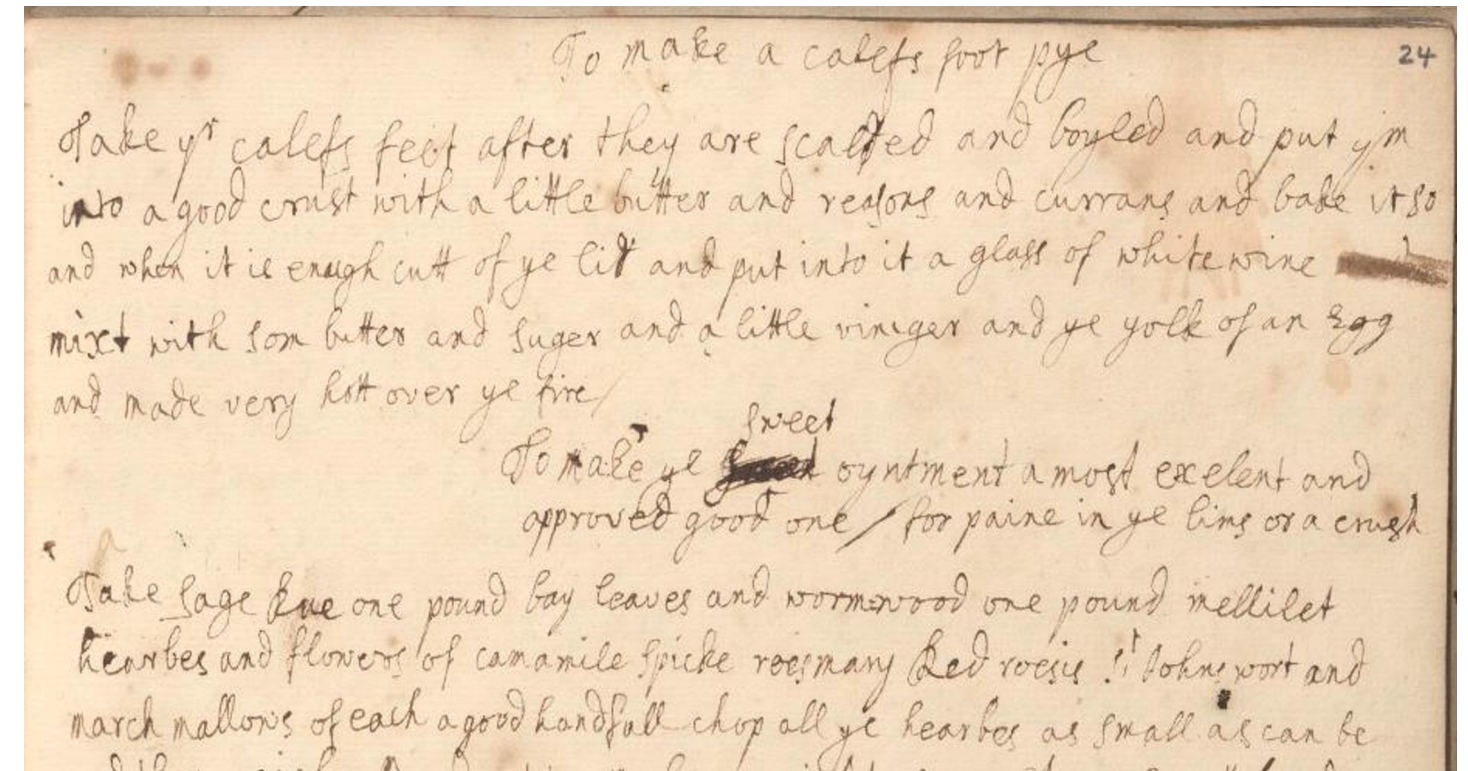 To make a calefs foot pye
24
Take yr calefs feet after they are scalded and boyled and put ym
into a good crust with a little butter and reasons and currans and bake it so
and when it is enugh cutt of ye lid and put into it a glass of white wine
mixt with som butter and suger and a little vineger and ye yolk of an Egg
and made very hott over ye fire/
sweet
To make ye oyntment a most exelent and
approved good one / for paine in ye lims or a crush
Take sage Rue one pound bay leaves and wormwood one pound mellilet
hearbes and flowers of camamile spicke roesmary Red roesis St Johns wort and
march mallows of each a good handfull chop all ye hearbes as small as can be